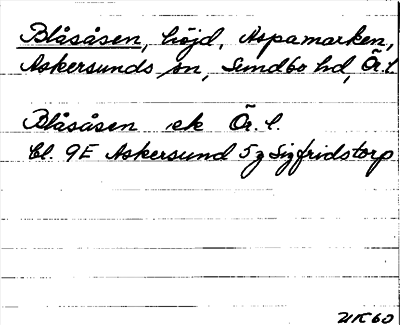 Blåsåsen, höjd, Aspamarken,
Askersunds sn, Sundbo hd, Ör. l.
Blåsåsen ek Ör. l.
bl. 9E Askersund 5g Sigfridstorp
UK60